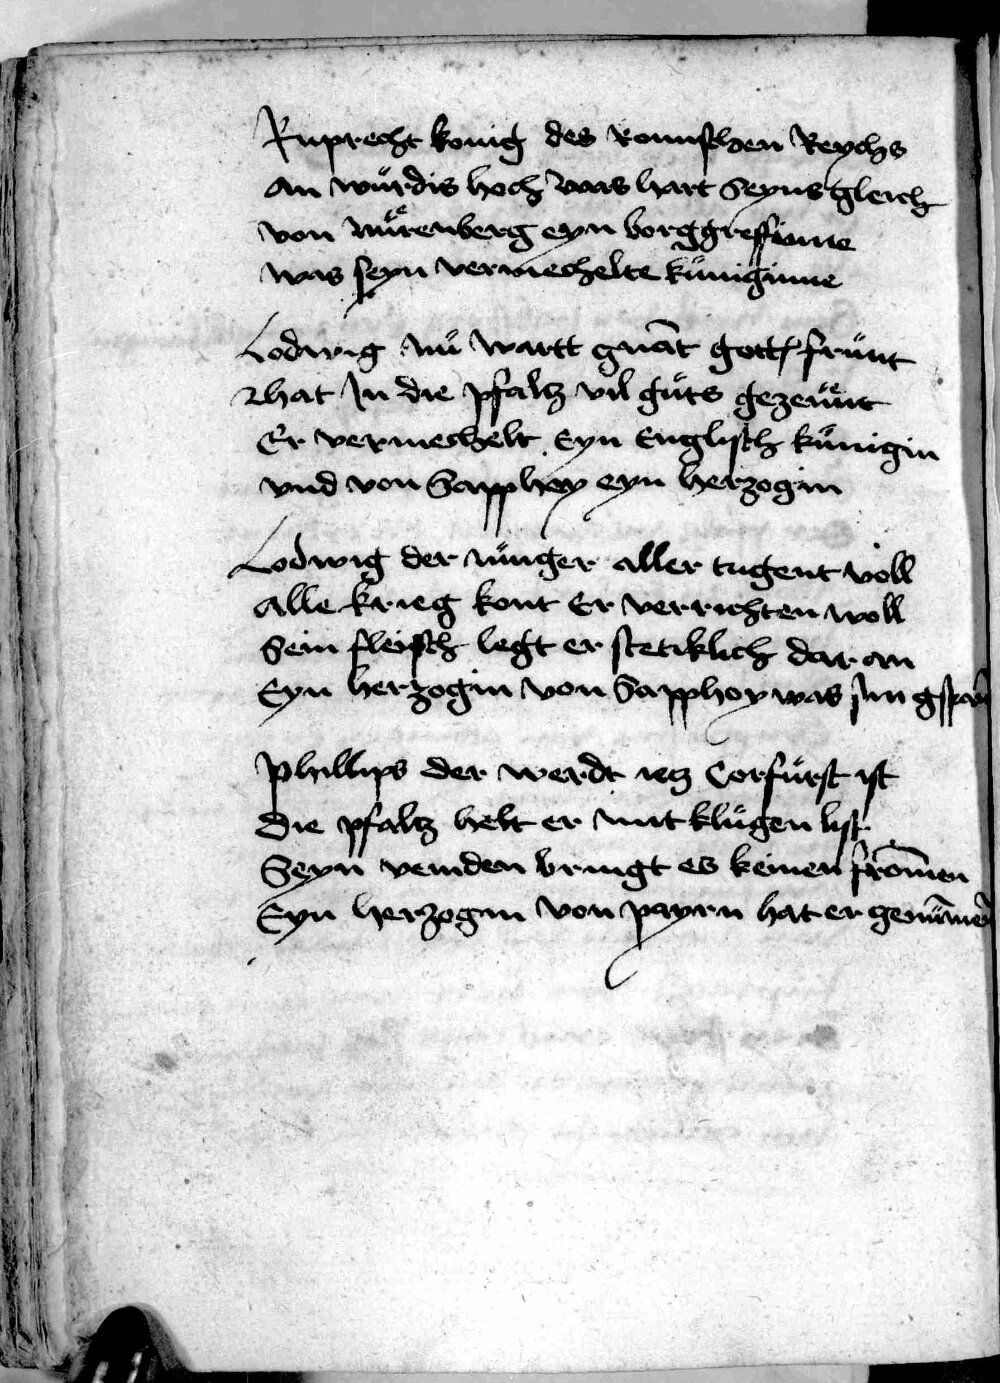 Ruprecht konig des Romischen Reychs
An wůrdis hoch was hart Seyns gleich
von nůrenberg eyn borggreffinne
was seyn vermechelte kůniginne
Lodwig nů wartt gnāt gott frůnt
That In die pfaltz vil gůts gezeůnt
Er vermechelt Eyn Englisch kůnigin
vnd von Sapphoy eyn herzogin
Lodwig der iůnger aller tugent voll
Alle krieg kont Er verrichten woll
Sein fleisch legt er stetiklich dar an
Eyn herzogin von Sapphoy was sin
Phillips der werdt ietz Corfůrst ist
Die pfaltz helt er mit klůgen list
Seyn veinden bringt es keinen frōmen
Eyn herzogin von payrn hat er genūmen